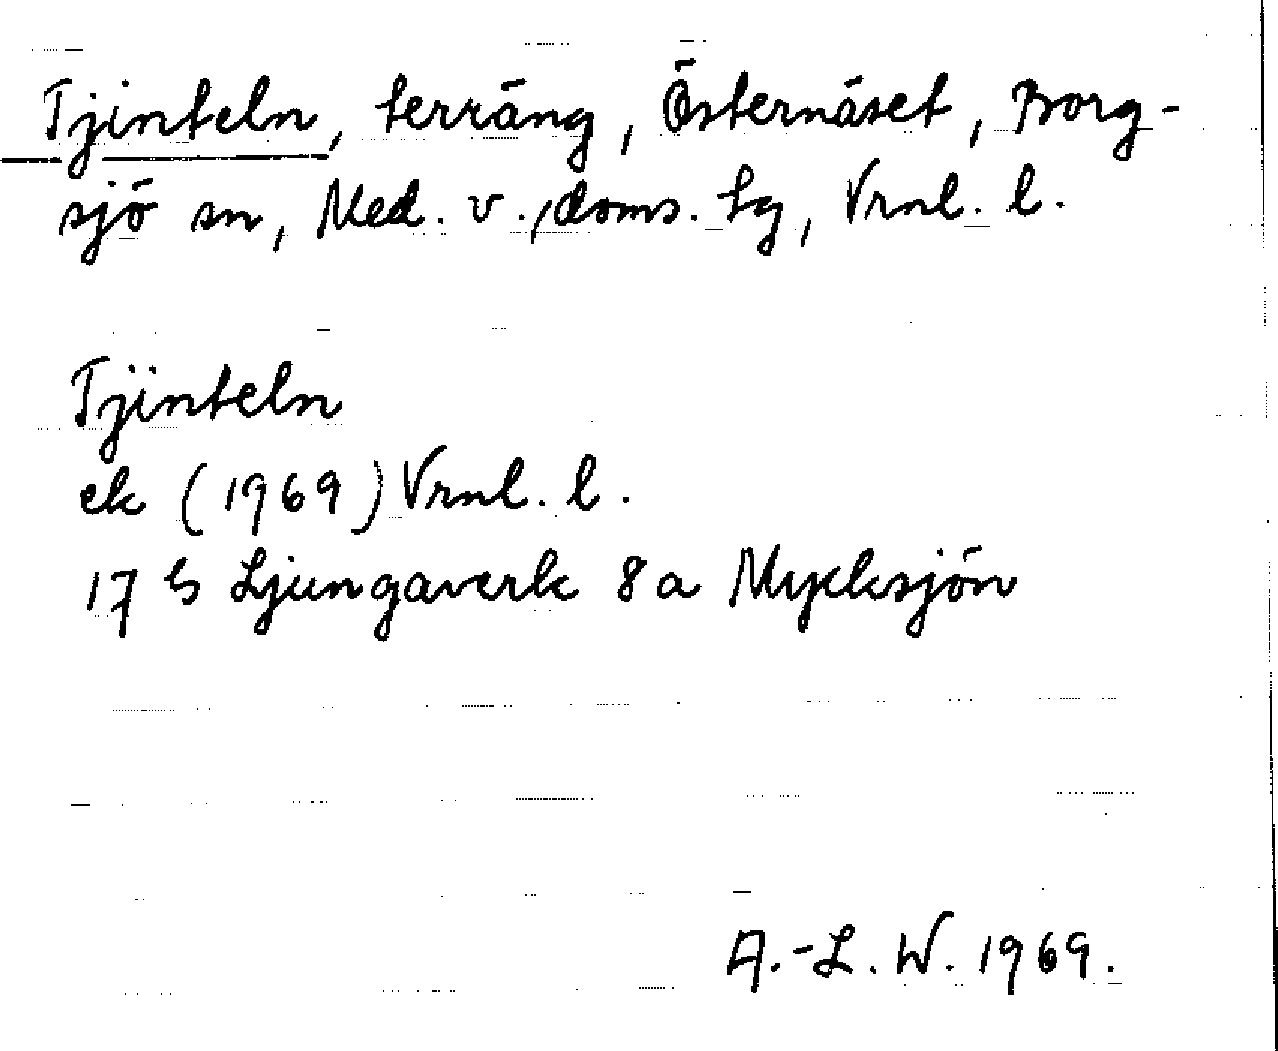 Tjinteln, terräng, Östernäset, Borg-
sjö sn, Med. v., doms. tg, Vrnl. l.
Tjinteln
ek (1969) Vrnl. l.
17 G Ljungaverk 8 a Mycksjön
A.-L. W. 1969.